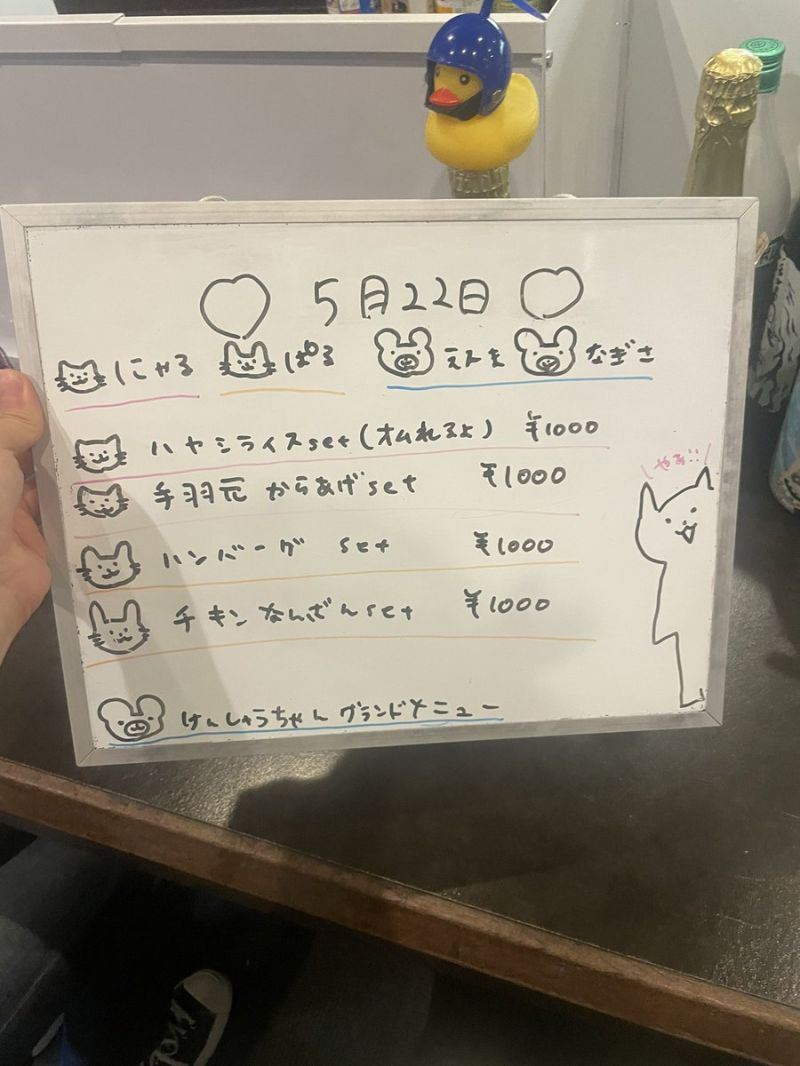 5月22日
にゃる ぱる えんま なぎさ
ハヤシライスset(オムれるよ) ¥1000
手羽元 からあげset ¥1000
ハンバーグ set ¥1000
チキンなんばんset ¥1000
けんしゅうちゃん グランドメニュー